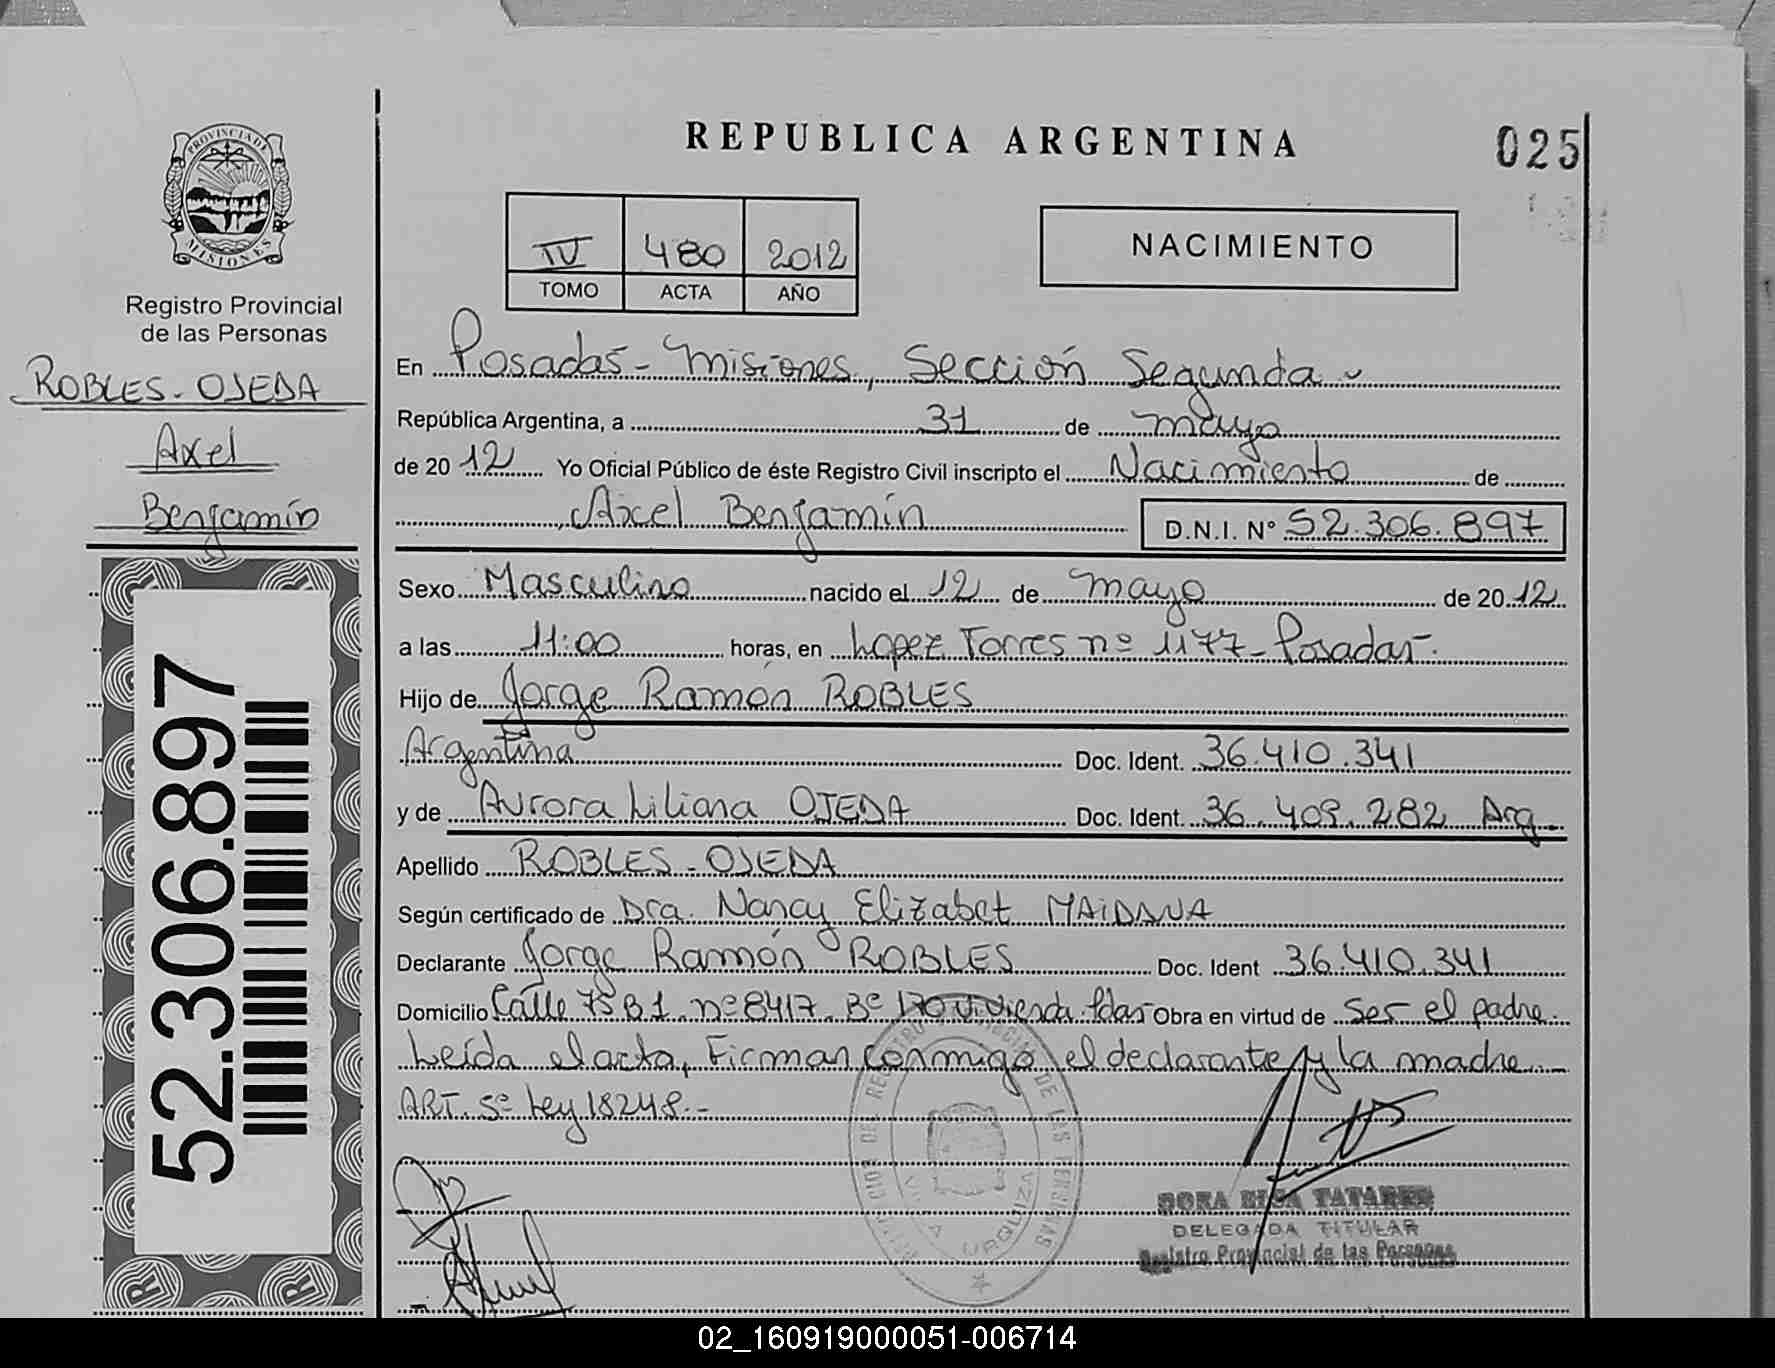 REPUBLICA ARGENTINA
025
PROVINCIA DE MISIONES
Registro Provincial
de las Personas
ROBLES - OJEDA
Axel
Benjamín
52.306.897
IV 480 2012
TOMO ACTA AÑO
NACIMIENTO
En Posadas - Misiones, Sección Segunda
República Argentina, a 31 de mayo
de 2012 Yo Oficial Público de éste Registro Civil inscripto el Nacimiento de
Axel Benjamín D.N.I. N° 52.306.897
Sexo Masculino nacido el 12 de mayo de 2012
a las 11:00 horas, en Lopez Torres nº 1177 - Posadas.
Hijo de Jorge Ramón ROBLES
Argentina Doc. Ident. 36.410.341
y de Aurora Liliana OJEDA Doc. Ident. 36.409.282 Arg
Apellido ROBLES - OJEDA
Según certificado de Dra. Nancy Elizabet MAIDANA
Declarante Jorge Ramón ROBLES Doc. Ident 36.410.341
Domicilio Calle 75 B1. nº 8417. Bº 170 vivienda Pdas Obra en virtud de ser el padre.
Leída el acta, Firman conmigo el declarante y la madre
ART. 5º Ley 18248.-
VILLA URQUIZA
DE LAS PERSONAS
DORA TATAREN
DELEGADA TITULAR
Registro Provincial de las Personas
02_160919000051-006714